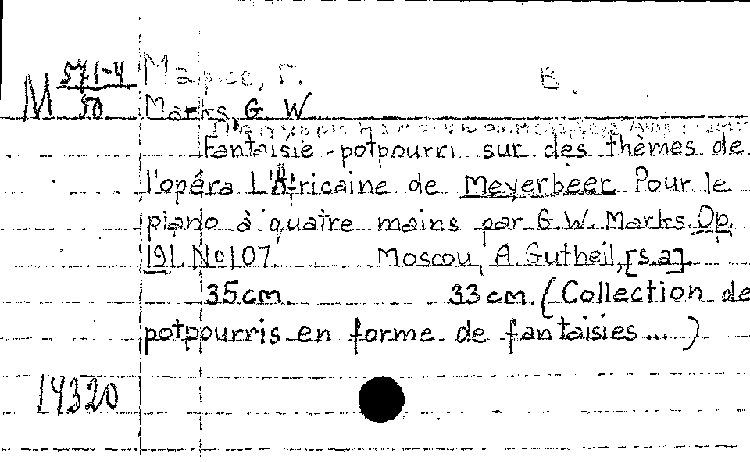 М 571-4/50 Маркс, Г. В.
Marks, G. W.
Fantaisie-potpourri sur des thèmes de
l'opéra L'Africaine de Meyerbeer Pour le
piano à quatre mains par G. W. Marks. Op.
191. No 107. Moscou, A. Gutheil, [s.a].
35cm. 33cm. (Collection de
potpourris en forme de fantaisies...)
14320